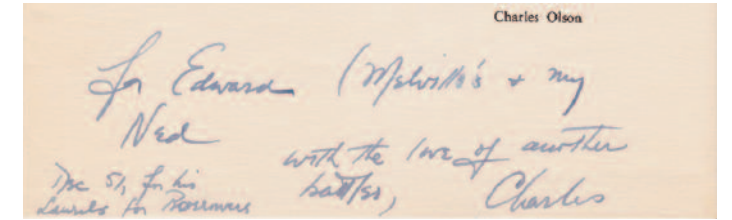 Charles Olson
for Edward (Melville's + my
Ned
with the love of another
battler, Charles
Dec 51, for his
Laurels for Borrowers